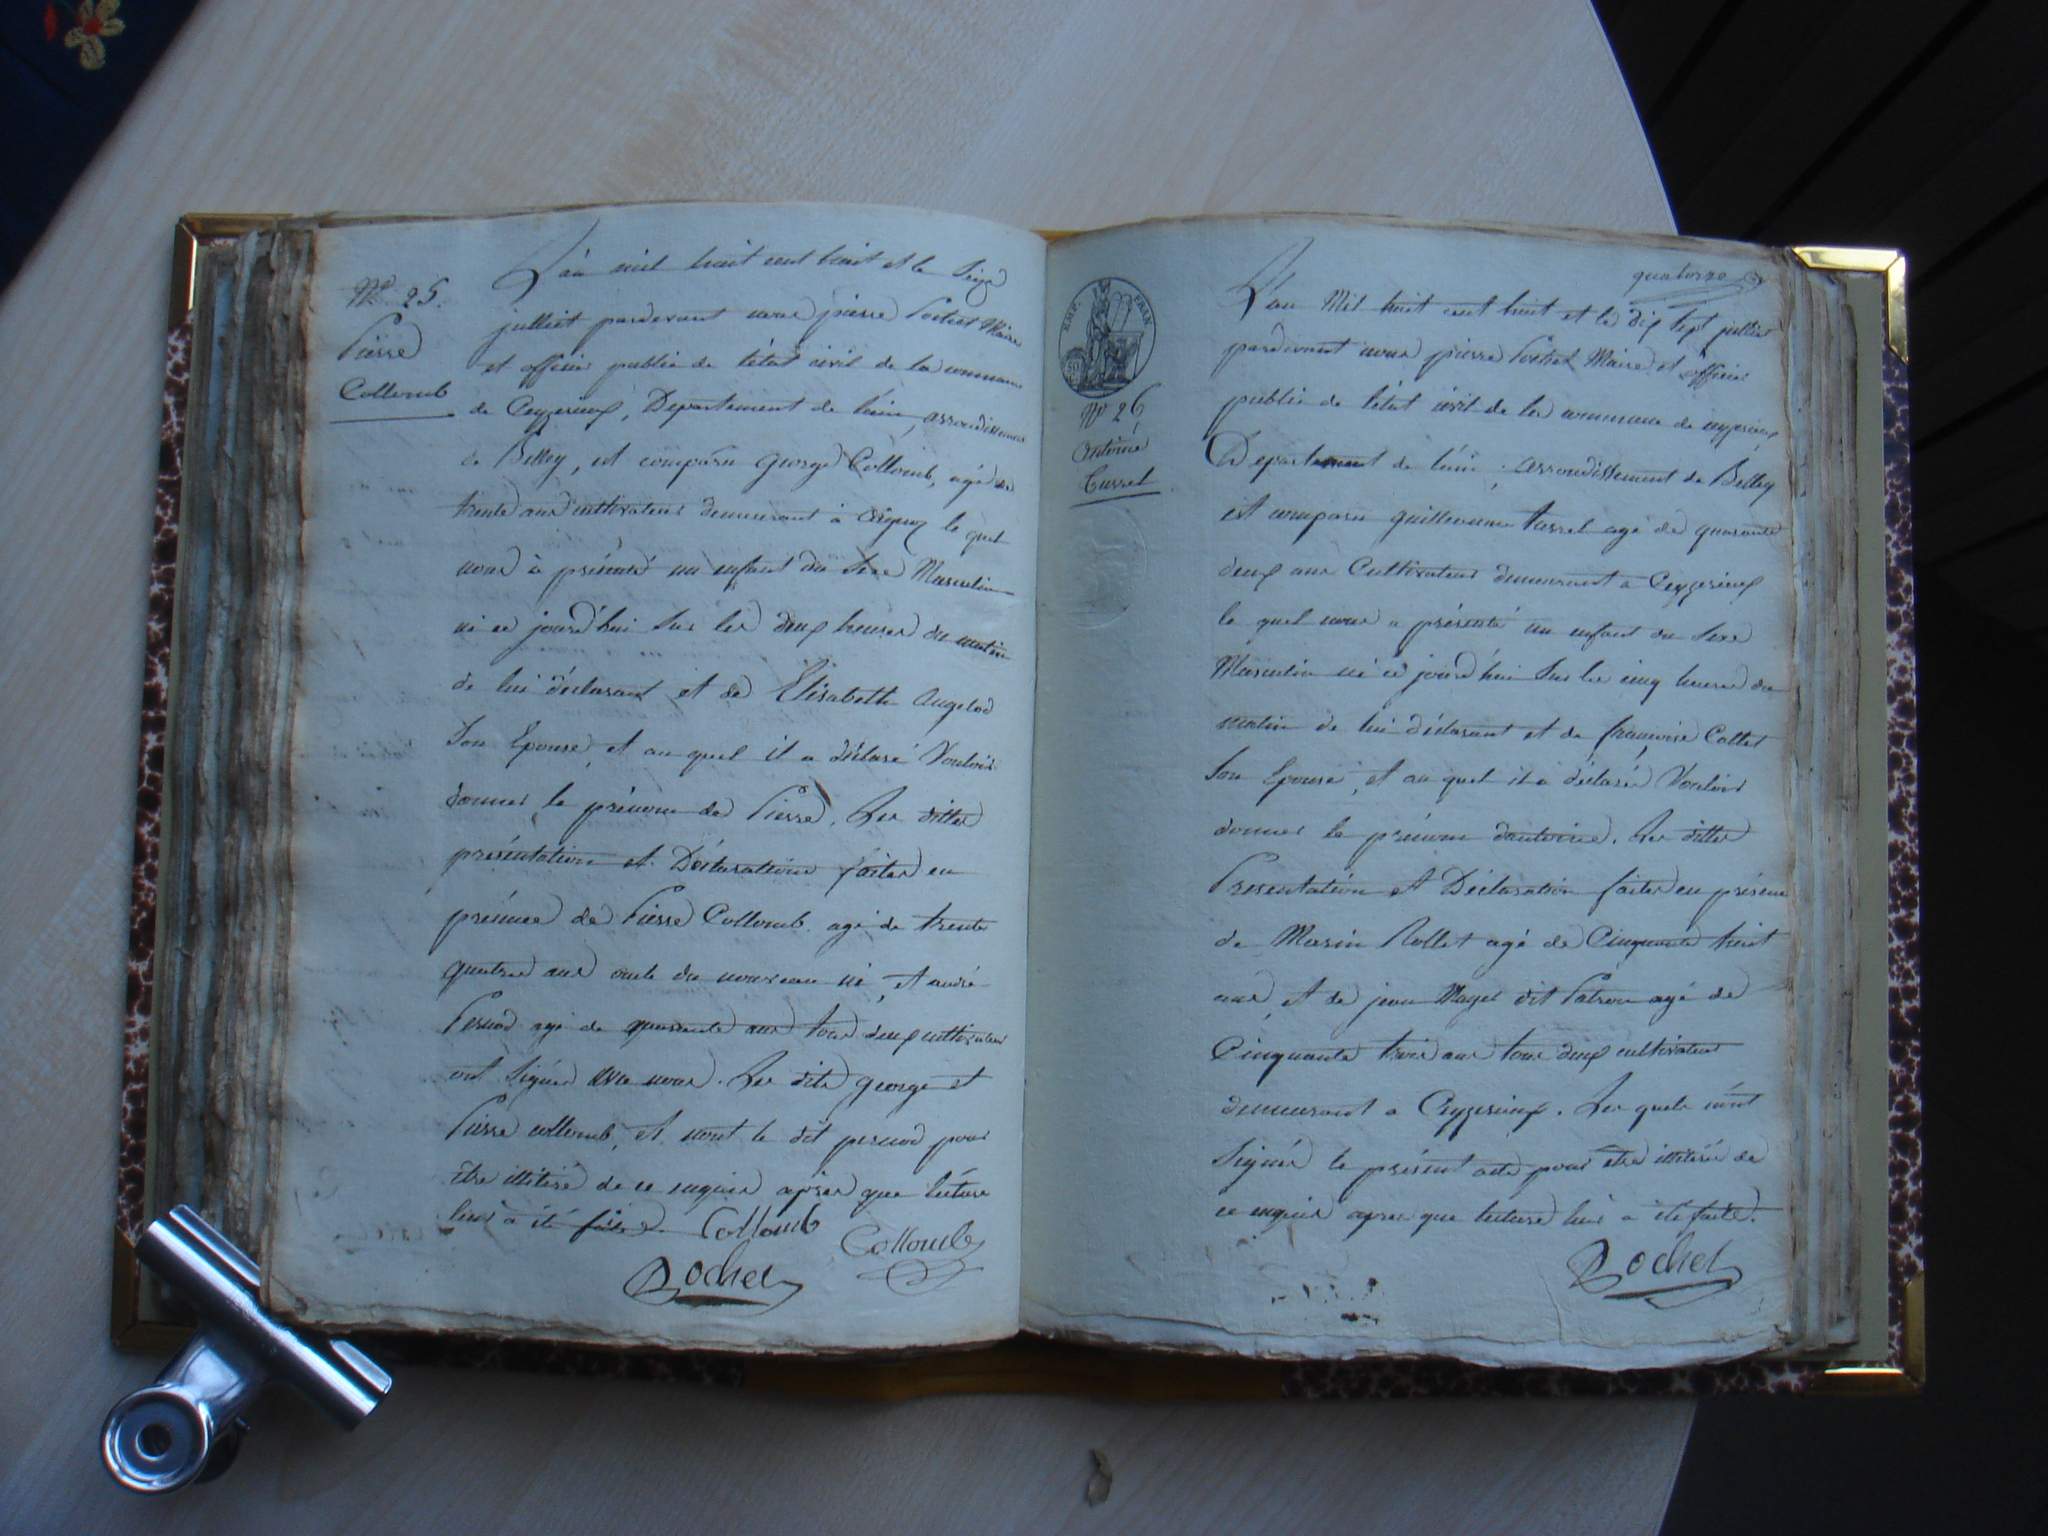 Nº 25.
Pierre
Collomb
L'an mil huit cent huit et le Seize
julliet pardevant nous pierre Maire
et officier public de l'état civil de la commune
de Ceyzerieux, Département de l'ain, arrondissement
de Belley, est comparu george Collomb, agé de
trente ans cultivateur demeurant à le quel
nous à présenté un enfant du Sexe Masculin
né ce jourd'hui Sur les deux heures du matin
de lui déclarant et de Elisabeth
Son Epouse, et au quel il a déclaré Vouloir
donner le prénom de Pierre, Les dittes
présentation et Déclaration faites en
présence de Pierre Collomb agé de trente
quatre ans oncle du nouveau né, et andré
agé de quarante ans tous deux cultivateurs
ont Signés avec nous. Les dits george et
Pierre collomb, et nont le dit pour
être illitéré de ce enquis après que lecture
leur à été faite. Collomb Collomb
Rochet
quatorze
EMP. FRAN.
Nº 26
Antoine
Turrel
L'an Mil huit cent huit et le dix Sept julliet
pardevant nous pierre Maire et officier
public de l'état civil de la commune de ceyzerieux
Département de l'ain, arrondissement de Belley
est comparu guilleaume turrel agé de quarante
deux ans Cultivateur demeurant a Ceyzerieux
le quel nous a présenté un enfant du Sexe
Masculin né ce jourd'hui Sur les cinq heures du
matin de lui déclarant et de françoise Collet
Son Epouse, et au quel il a déclaré Vouloir
donner le prénom dantoine. Les dittes
Presentation et Déclaration faites en présence
de Marin Rollet agé de Cinquante huit
ans, et de jean Mayer dit Patron agé de
Cinquante trois ans tous deux cultivateurs
demeurant a Ceyzerieux. Les quels n'ont
Signés le présent acte pour être illitéré de
ce enquis apres que lecture leur à été faite.
Rochet